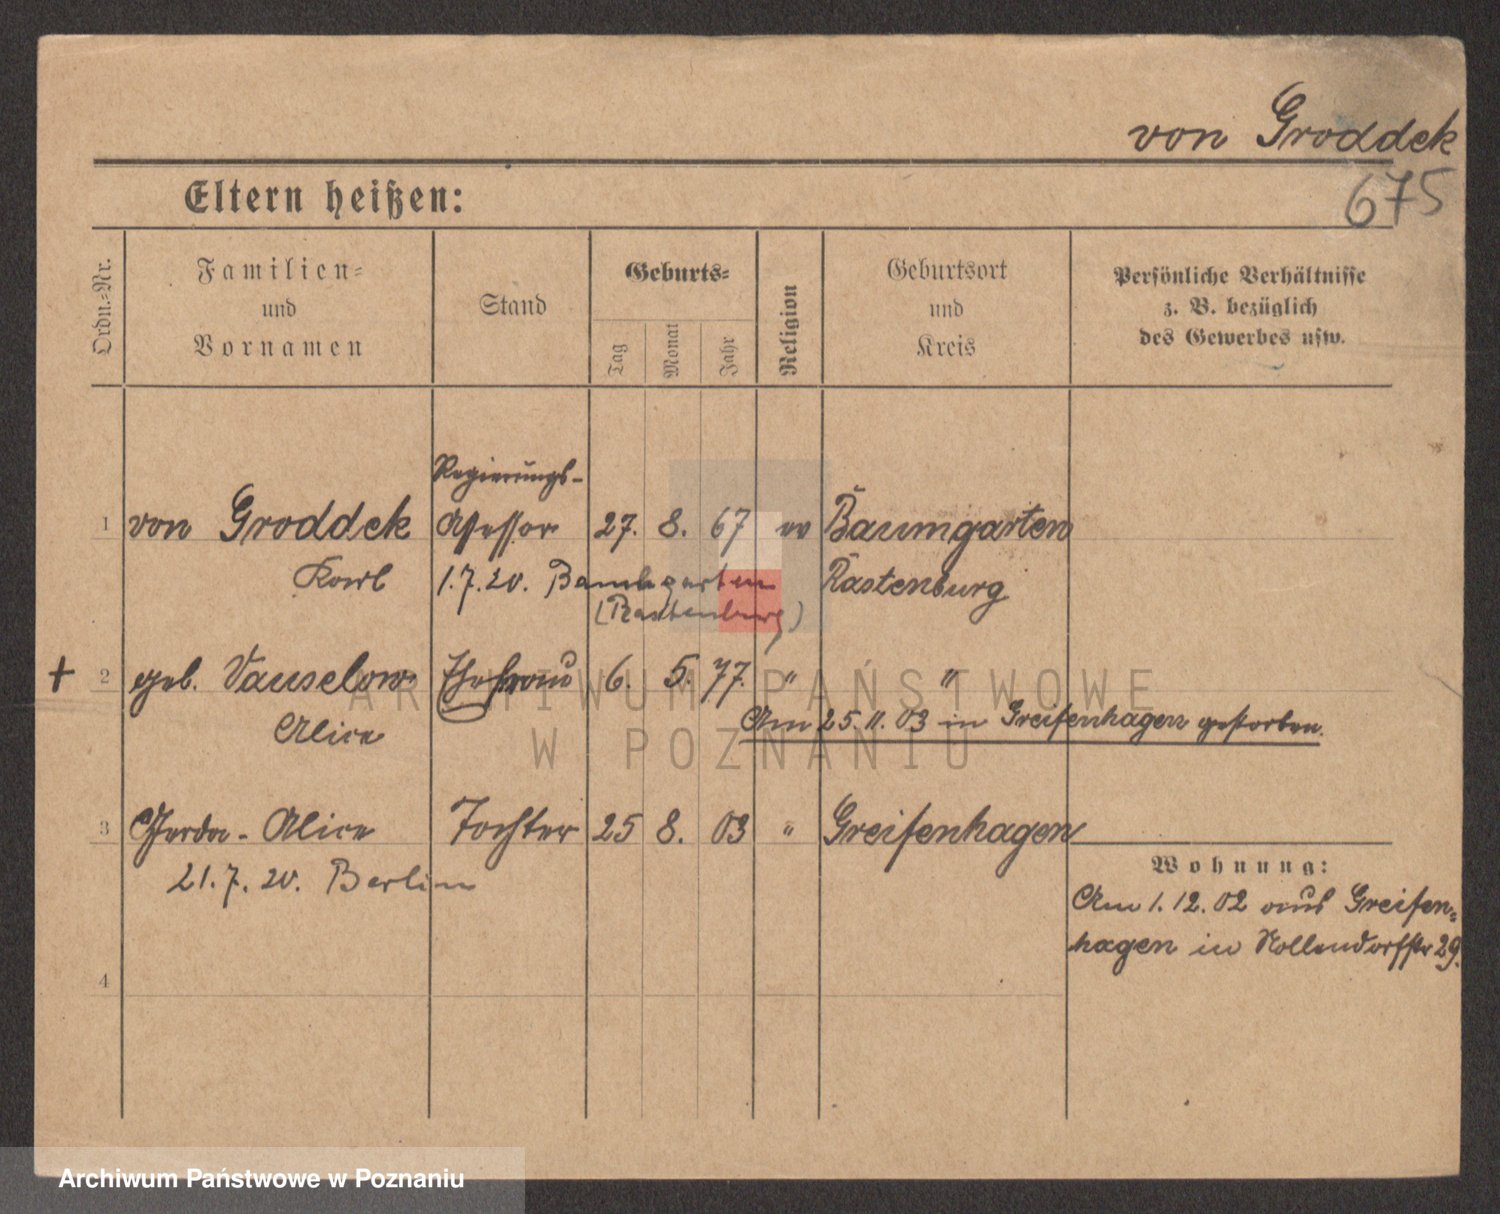 von Groddek
675
Eltern heißen:
Ordn.-Nr.
Familien-
und
Vornamen
Stand
Geburts-
Tag
Monat
Jahr
Religion
Geburtsort
und
Kreis
Persönliche Verhältnisse
z. B. bezüglich
des Gewerbes usw.
Regierungs-
1 von Groddek Assessor 27. 8. 67 ev Baumgarten
Karl 1.7.20. Baumgarten Rastenburg
(Rastenburg)
+ 2 geb. Vanselow Ehefrau 6. 5. 77. " "
Am 25.11.03 in Greifenhagen gestorben.
Alice
3 Gerda-Alice Tochter 25 8. 03 " Greifenhagen
21.7.20. Berlin
Wohnung:
Am 1.12.02 aus Greifen-
hagen in Nollendorfstr 29.
4
ARCHIWUM PAŃSTWOWE
W POZNANIU
Archiwum Państwowe w Poznaniu